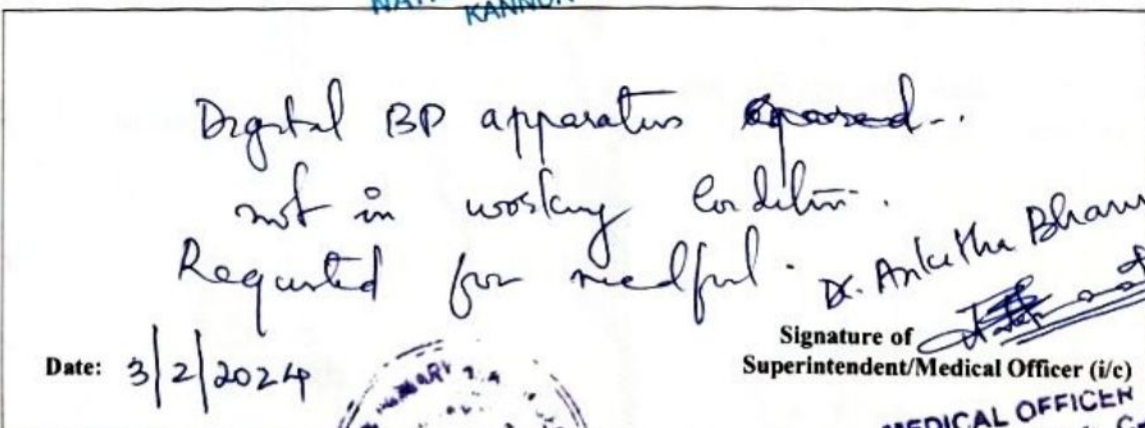 KANNUR
Digital BP apparatus
not in working condition.
Requested for needful.
Dr. Anketha
Signature of
Superintendent/Medical Officer (i/c)
Date: 3/2/2024
MEDICAL OFFICER